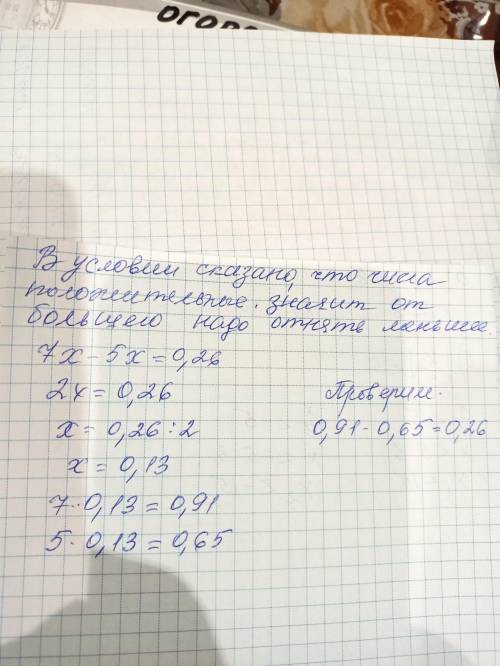 ОГОРО
В условии сказано, что числа
положительные. значит от
большего надо отнять меньшее
7x - 5x = 0,26
2x = 0,26
x = 0,26 : 2
x = 0,13
7 · 0,13 = 0,91
5 · 0,13 = 0,65
Проверим.
0,91 - 0,65 = 0,26